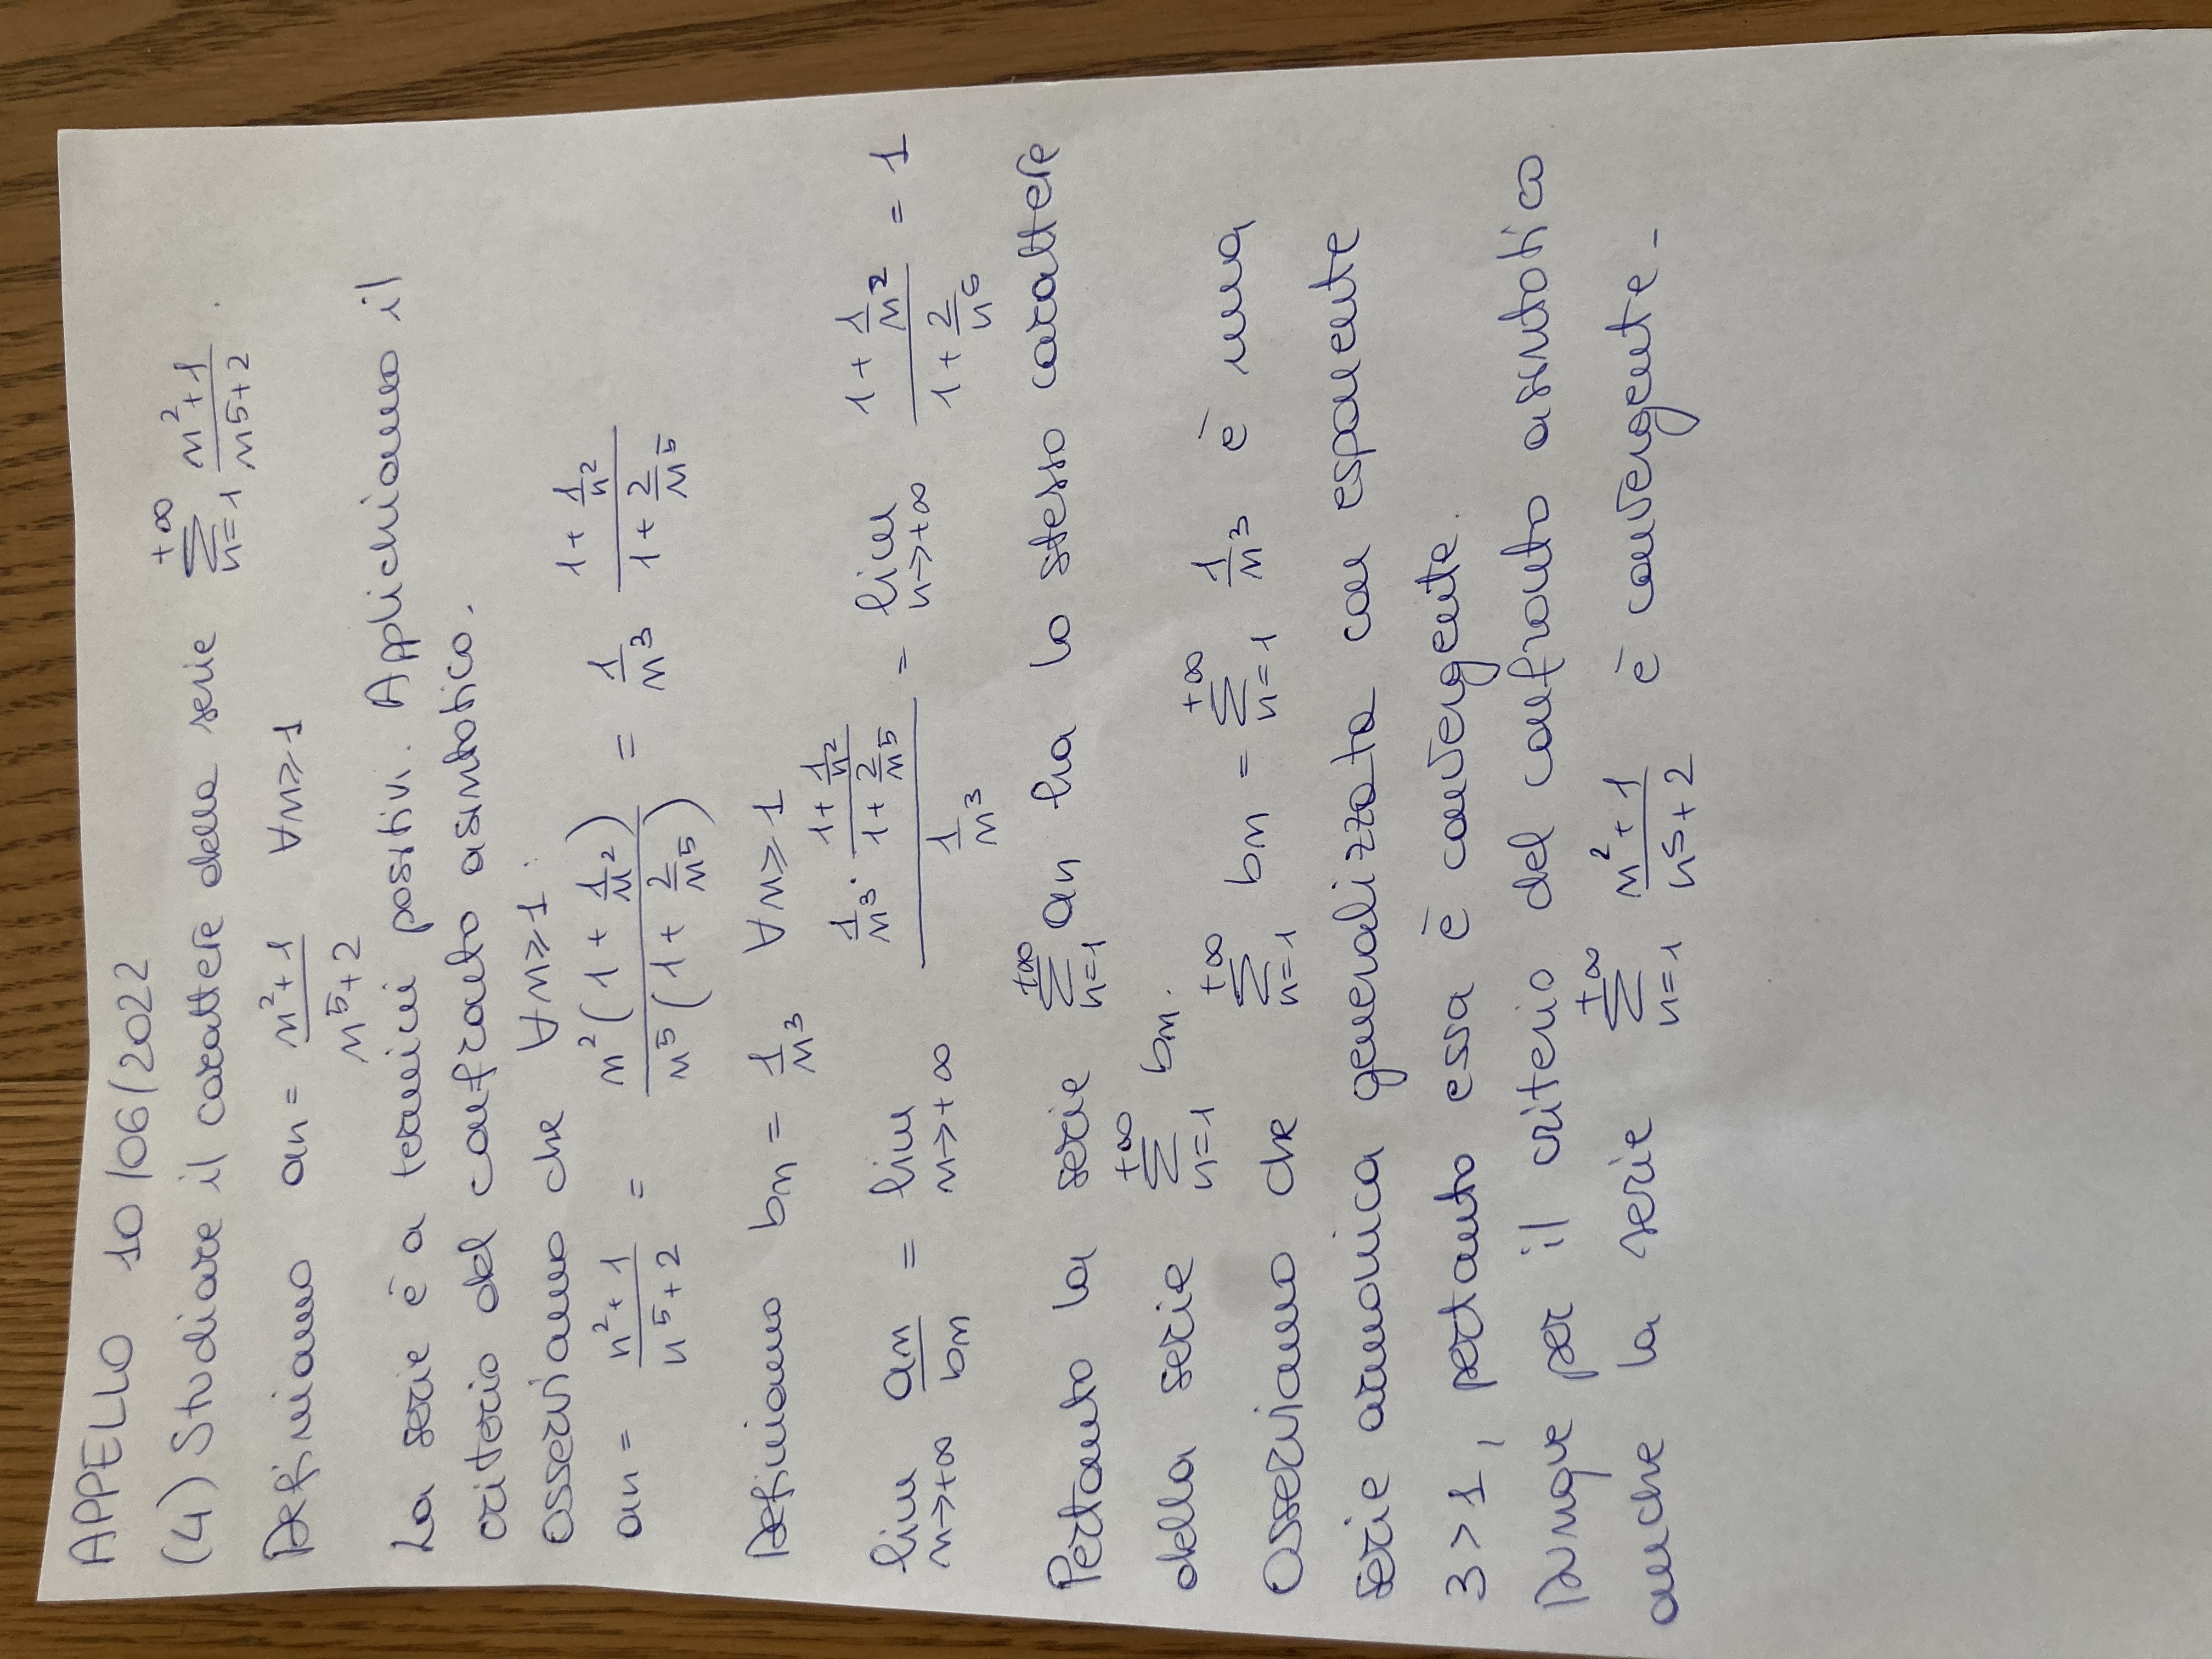 APPELLO 10/06/2022
(4) Studiare il carattere della serie \sum_{n=1}^{+\infty} \frac{n^2+1}{n^5+2}.
Definiamo an = \frac{n^2+1}{n^5+2} ∀n≥1
La serie è a termini positivi. Applichiamo il
criterio del confronto asintotico.
Osserviamo che ∀n≥1:
an = \frac{n^2+1}{n^5+2} = \frac{n^2(1+\frac{1}{n^2})}{n^5(1+\frac{2}{n^5})} = \frac{1}{n^3} \frac{1+\frac{1}{n^2}}{1+\frac{2}{n^5}}
Definiamo bn = \frac{1}{n^3} ∀n≥1
\lim_{n→+\infty} \frac{an}{bn} = \lim_{n→+\infty} \frac{\frac{1}{n^3} · \frac{1+\frac{1}{n^2}}{1+\frac{2}{n^5}}}{\frac{1}{n^3}} = \lim_{n→+\infty} \frac{1+\frac{1}{n^2}}{1+\frac{2}{n^5}} = 1
Pertanto la serie \sum_{n=1}^{+\infty} an ha lo stesso carattere
della serie \sum_{n=1}^{+\infty} bn.
Osserviamo che \sum_{n=1}^{+\infty} bn = \sum_{n=1}^{+\infty} \frac{1}{n^3} è una
serie armonica generalizzata con esponente
3>1, pertanto essa è convergente.
Dunque per il criterio del confronto asintotico
anche la serie \sum_{n=1}^{+\infty} \frac{n^2+1}{n^5+2} è convergente.